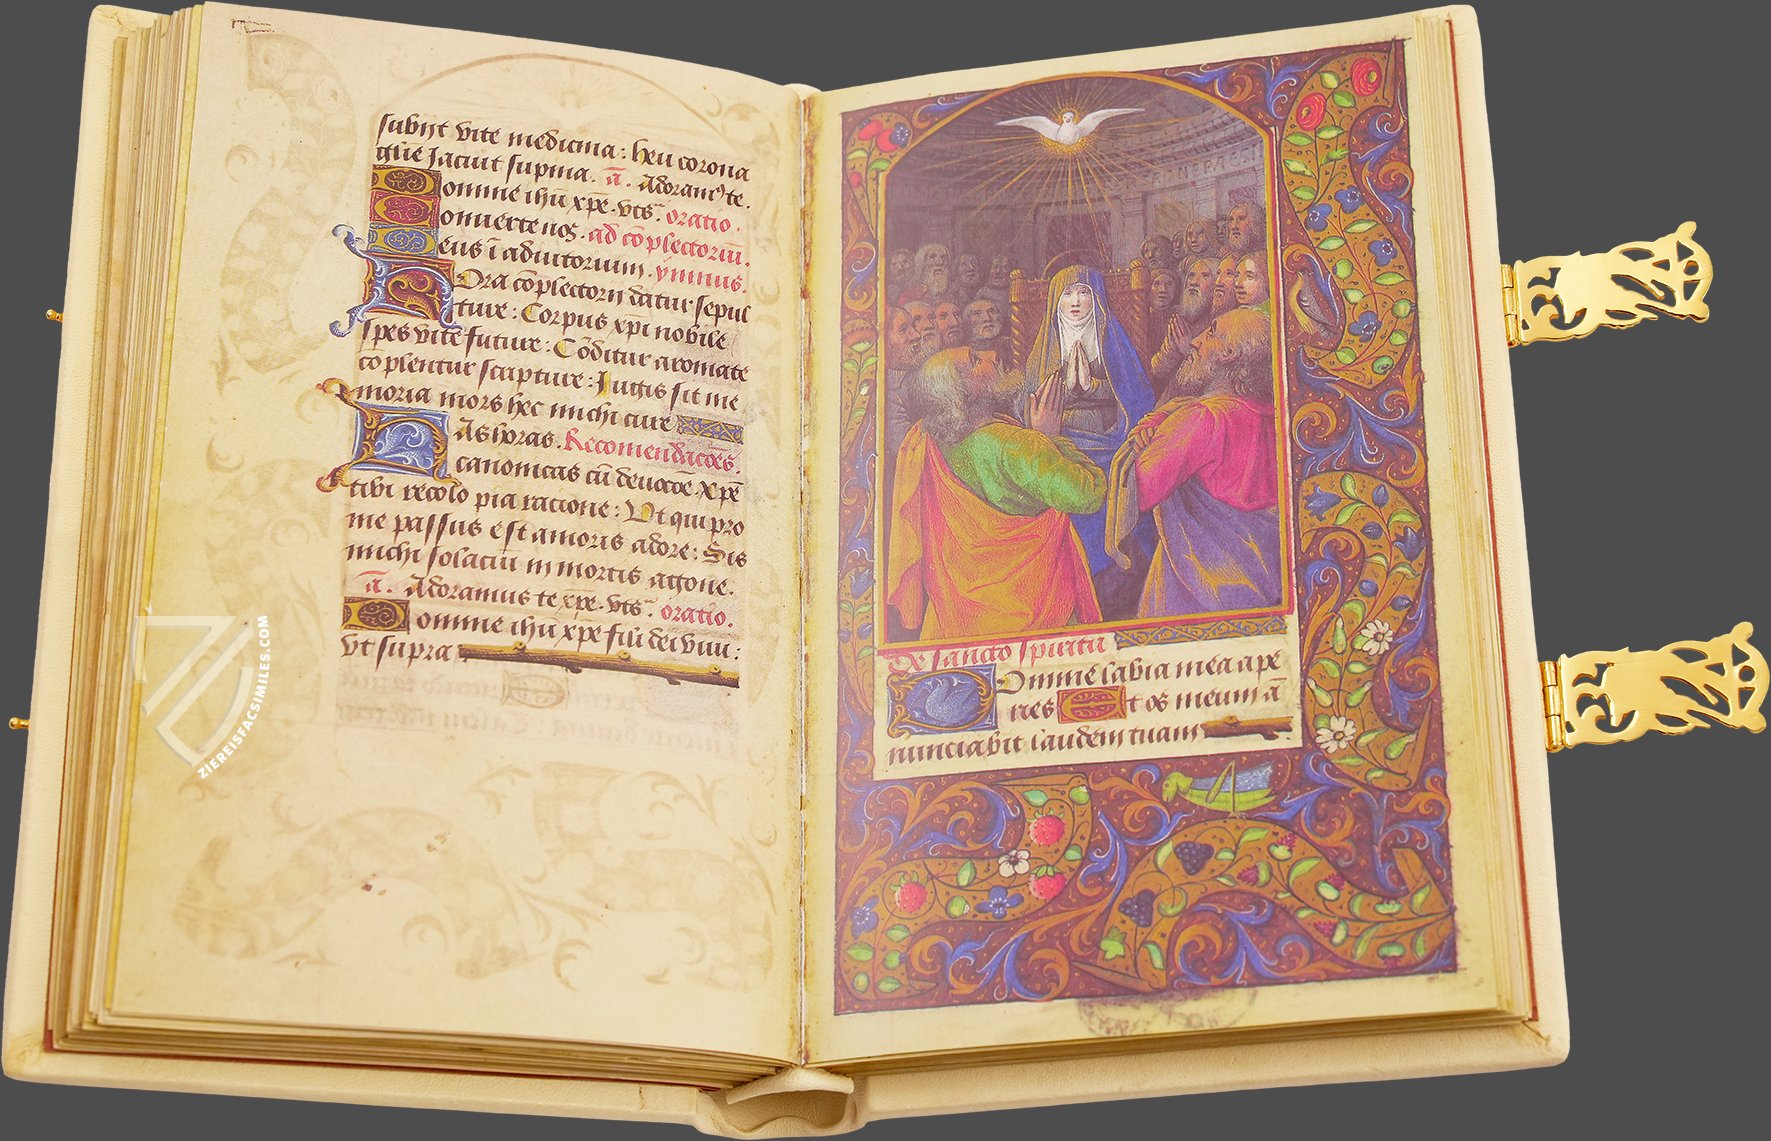 subijt vite medicina: heu corona
glīe Jacuit supina. ā. Adoram⁹ te.
Domine ihū xp̄e. vts̄. oratio.
Conuerte nos. ad cōplectoriū.
Deus ī adiutorium. ymnus.
Hora cōplectorij datur sepul
ture: Corpus xp̄i nobile
spes vite future: Cōditur aromate
cōplentur scripture: Jugis sit me
moria mors hec michi cure
Has horas. Recomendacōēs.
canonicas cū deuocōe xp̄e
tibi recolo pia racione: Vt qui pro
me passus est amoris ardore: Sis
michi solaciū in mortis agone.
ā. Adoramus te xp̄e. vts̄. oratio.
Domine ihū xp̄e fili dei viui:
vt supra
De sancto spiritu
Domine labia mea ape
ries Et os meum ā
nunciabit laudem tuam
ZIEREISFACSIMILES.COM